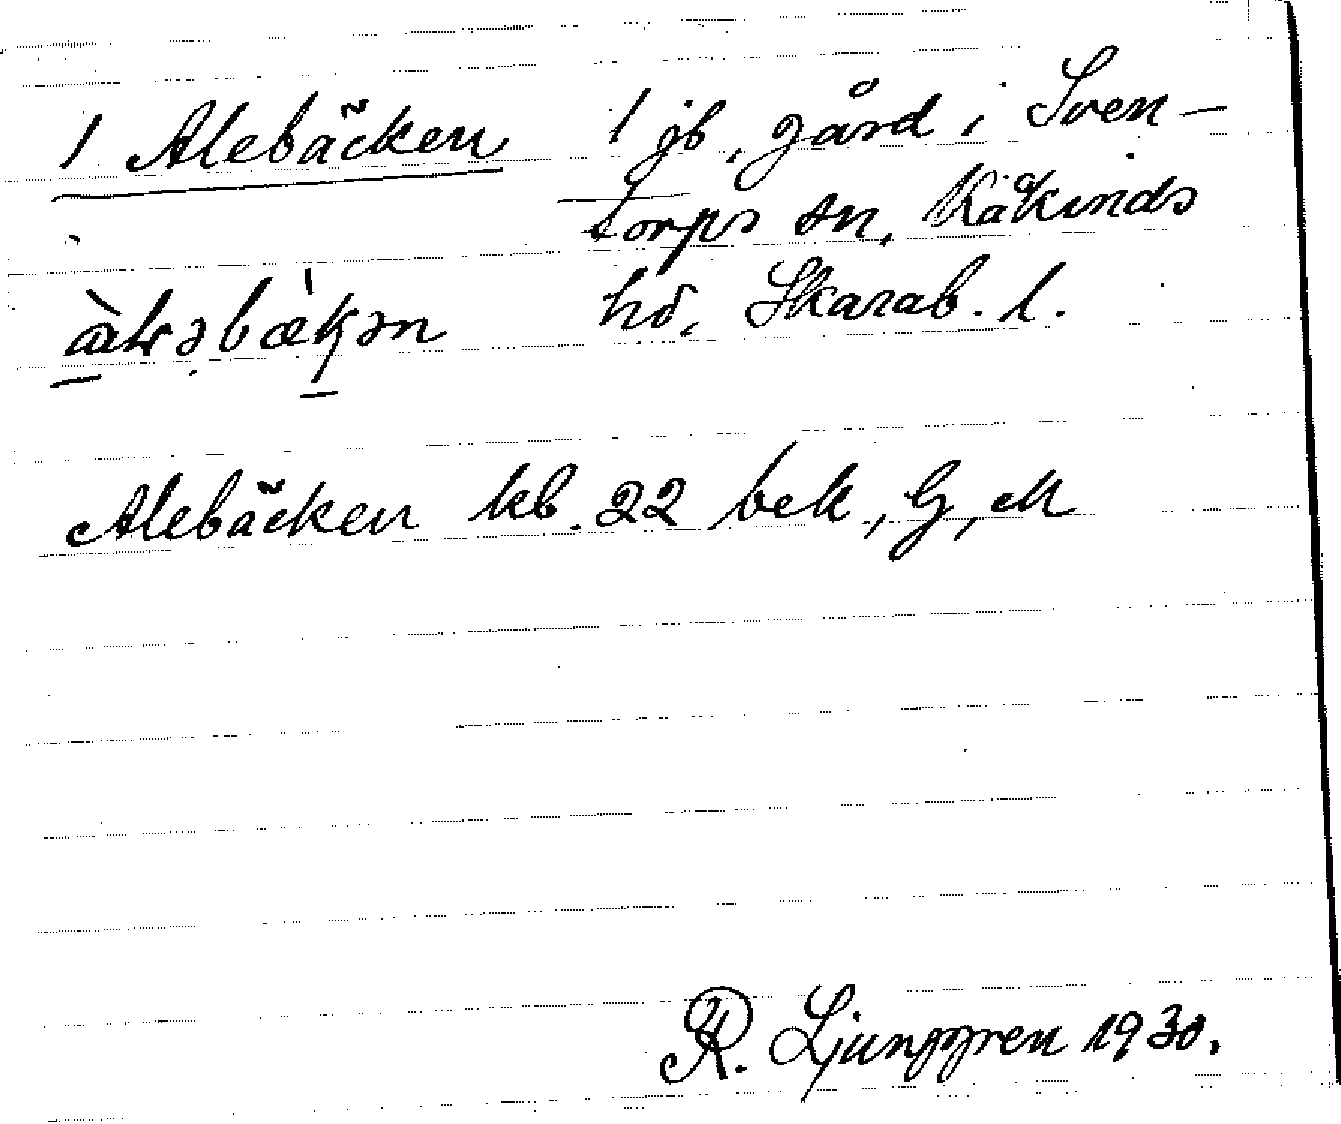 1 Alebäcken 1 jb, gård i Sven-
torps sn, Kåkinds
hd, Skarab. l.
Alebäcken kb. 22 bek, G, M
R. Ljunggren 1930.